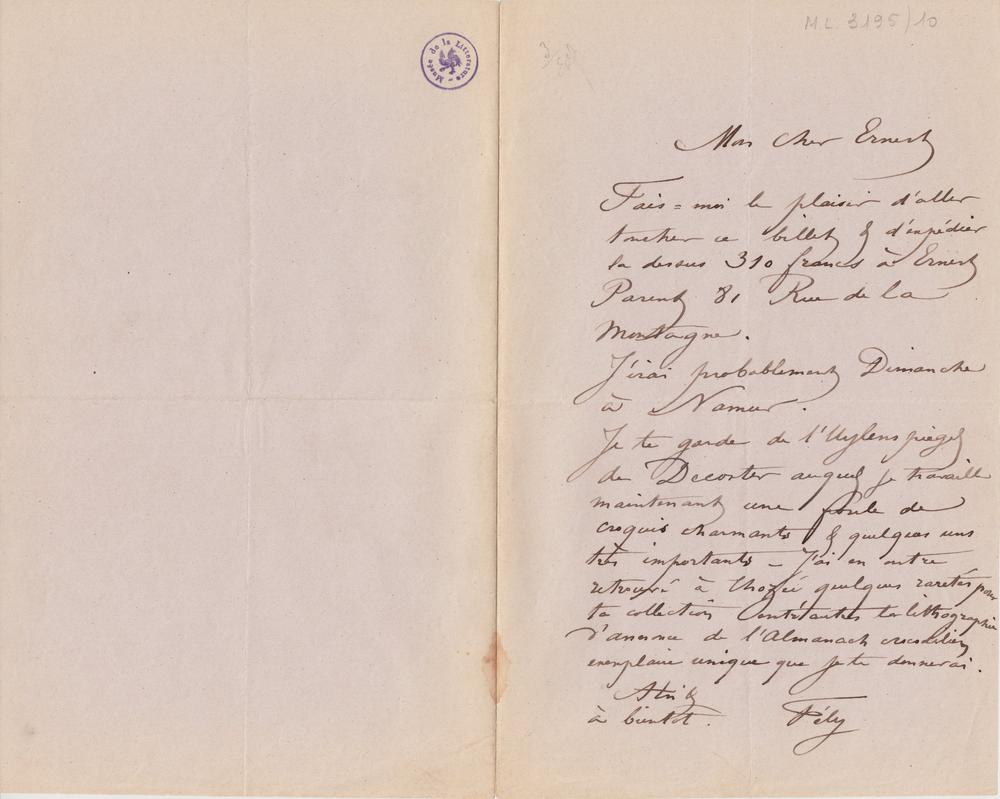 M.L. 3195/10
Musée de la Littérature
Mon cher Ernest
Fais-moi le plaisir d'aller
toucher ce billet & d'expédier
la dessus 310 francs à Ernest
Parent 81 Rue de la
Montagne.
J'irai probablement Dimanche
à Namur.
Je te garde de l'Uylenspiegel
de Decoster auquel je travaille
maintenant une foule de
croquis charmants & quelques uns
très importants – J'ai en outre
retrouvé à Thozée quelques raretés pour
ta collection entr'autres la lithographie
d'annonce de l'Almanach crocodilien
exemplaire unique que je te donnerai.
à bientôt. Fély